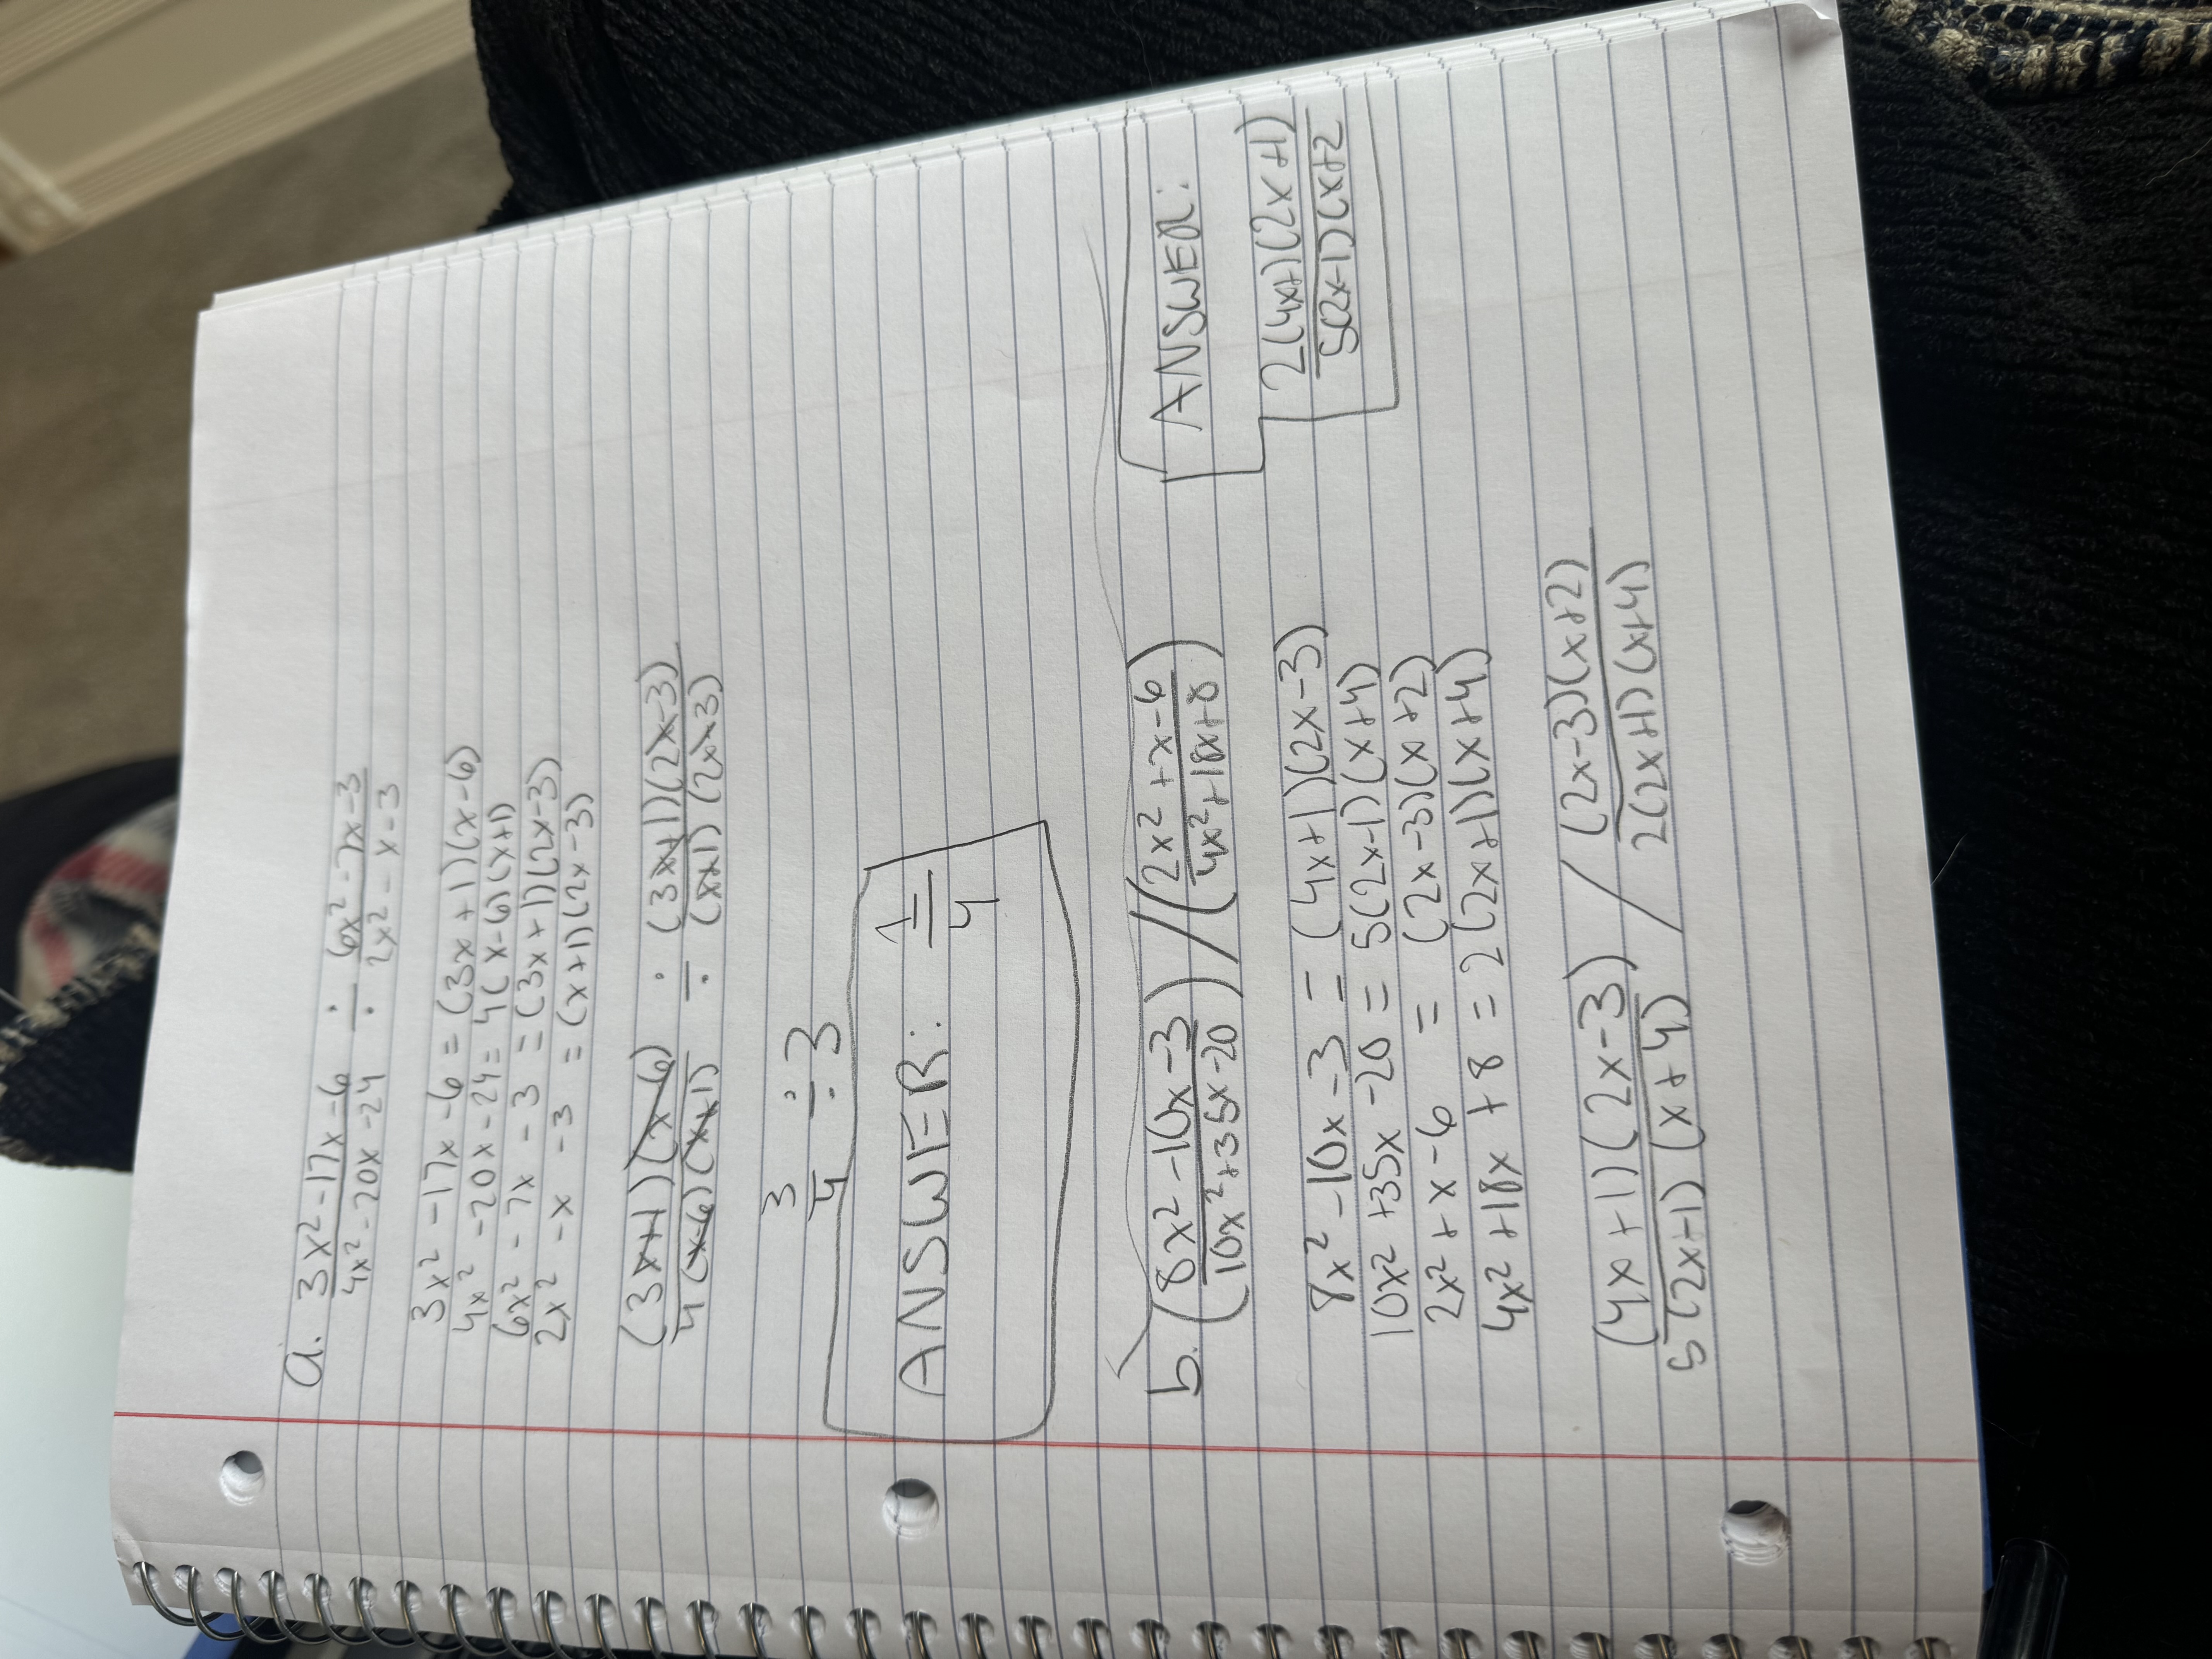 a. (3x² - 17x - 6)/(4x² - 20x - 24) ÷ (6x² - 7x - 3)/(2x² - x - 3)
3x² - 17x - 6 = (3x + 1)(x - 6)
4x² - 20x - 24 = 4(x - 6)(x + 1)
6x² - 7x - 3 = (3x + 1)(2x - 3)
2x² - x - 3 = (x + 1)(2x - 3)
(3x + 1)(x - 6)/4(x - 6)(x + 1) ÷ (3x + 1)(2x - 3)/(x + 1)(2x - 3)
3/4 ÷ 3
ANSWER: 1/4
b. ((8x² - 10x - 3)/(10x² + 35x - 20)) / ((2x² + x - 6)/(4x² + 18x + 8))
8x² - 10x - 3 = (4x + 1)(2x - 3)
10x² + 35x - 20 = 5(2x - 1)(x + 4)
2x² + x - 6 = (2x - 3)(x + 2)
4x² + 18x + 8 = 2(2x + 1)(x + 4)
(4x + 1)(2x - 3)/5(2x - 1)(x + 4) / (2x - 3)(x + 2)/2(2x + 1)(x + 4)
ANSWER:
2(4x+)(2x + 1)/5(2x - 1)(x + 2